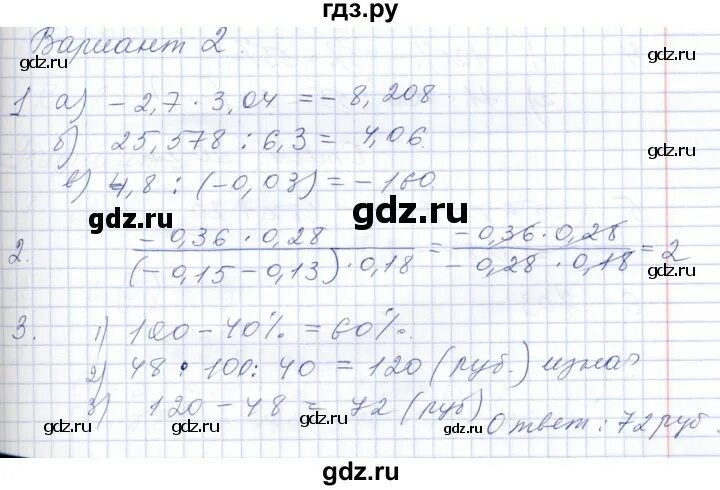 гдз.ру
Вариант 2
gdz.ru gdz.ru
1 а) −2,7 · 3,04 = −8,208
gdz.ru gdz.ru
б) 25,578 : 6,3 = 4,06.
gdz.ru
в) 4,8 : (−0,03) = −160.
gdz.ru gdz.ru
2. −0,36 · 0,28 / (−0,15 − 0,13) · 0,18 = −0,36 · 0,28 / −0,28 · 0,18 = 2
gdz.ru gdz.ru
3. 1) 100 − 40% = 60%.
gdz.ru gdz.ru
2) 48 · 100 : 40 = 120 (руб.)
gdz.ru
3) 120 − 48 = 72 (руб)
gdz.ru gdz.ru
Ответ: 72 руб.
gdz.ru